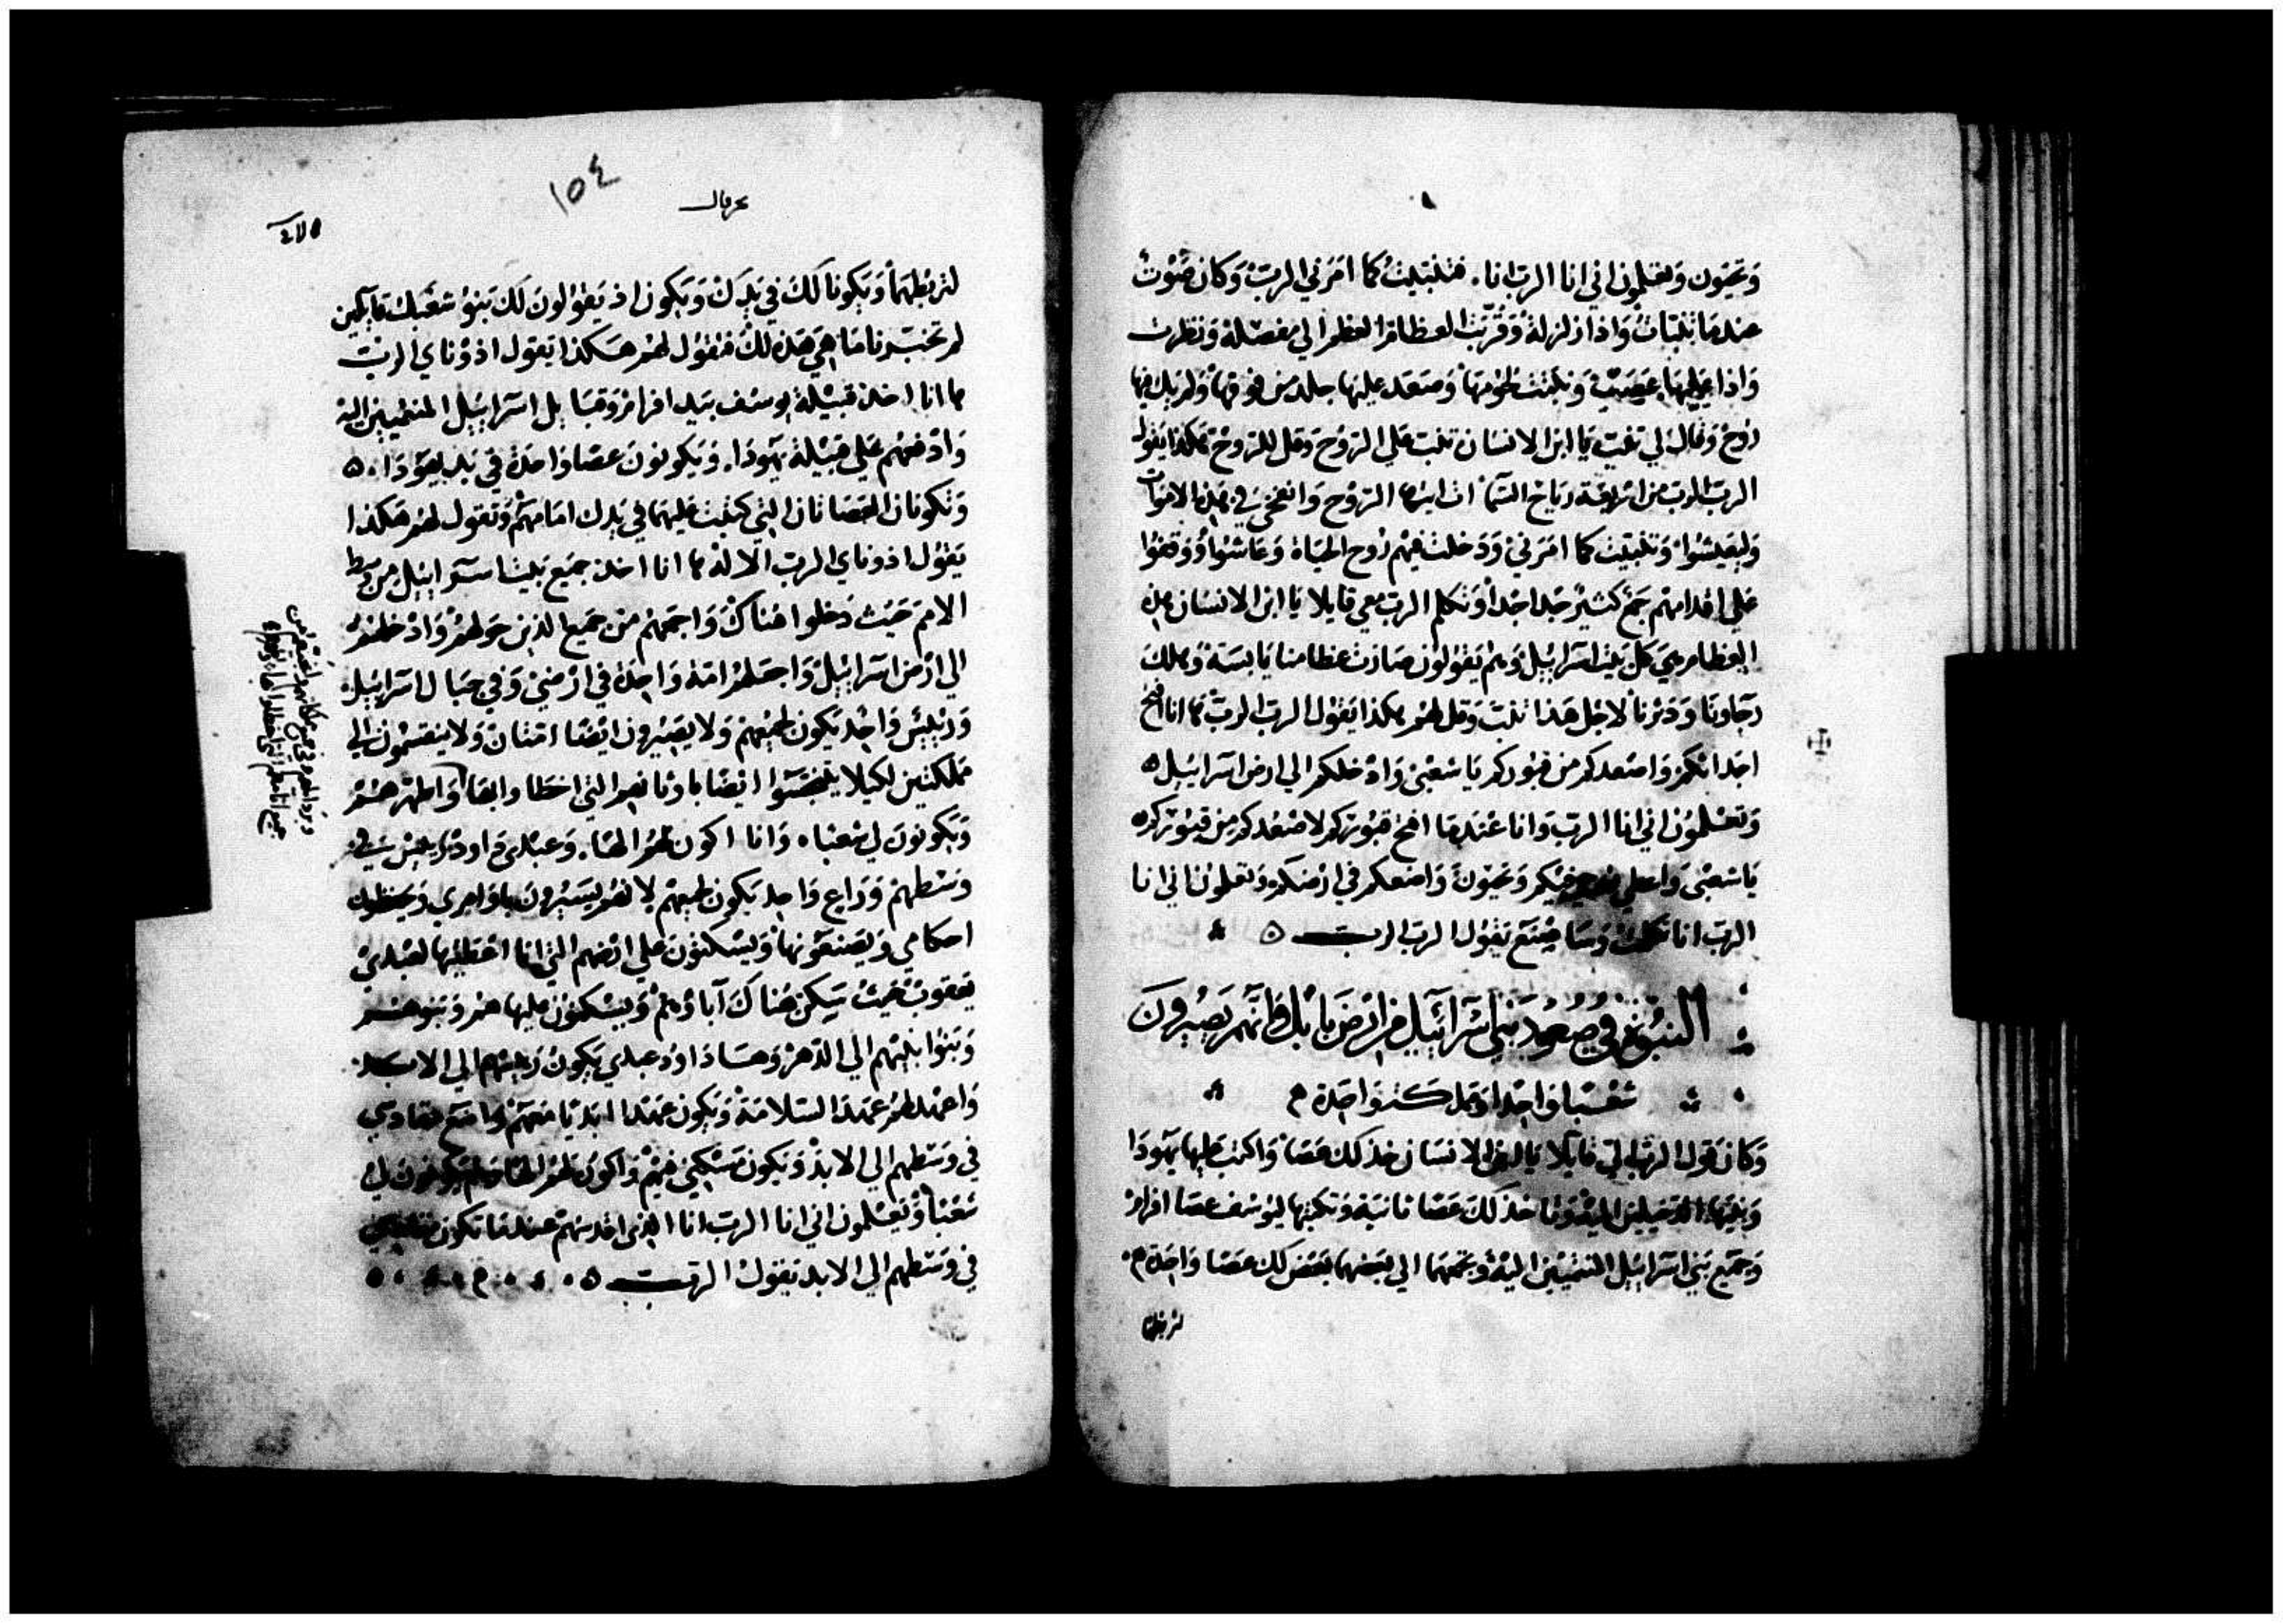 وَتحيَون وَتعلمون اني انا الرب انا. فتنبيت كما امَرَني الرب وَكان صَوْت
عندمَا تنبات وَاذا زلزلة وَقربَت العظام العظم الي مفصَله وَنظرت
وَاذا عليهَا عصَب وَنبتت لحومهَا وَصَعَد عليها جلد من فوقها وَلم يَك فيها
رُوح وَقال لي تنبّ يَا ابن الانسَان تنبّ علي الرُوح وَقل للرُوح هَكذا يَقول
الرب الرب من اربعَة ريَاح السَماء ات ايتها الرُوح وَانفخي في هَذه الاموَات
وَليعيشوا وَتنبيت كما امَرَني وَدَخلت فيهم رُوح الحيَاة وَعَاشوا وَوَقفوا
علي اقدامهم جَمع كثير جدا جدا وَتكلم الرب معي قايلا يَا ابن الانسَان هذه
العظام هي كل بَيت اسرَاييل وَهم يَقولون صَارَت عظامنا يَابسَة وَهلك
رَجاونَا وَدثرنا لاجل هَذا تنبّ وَقل لهم هكذا يَقول الرب الرب ها انا افتح
اجداثكم وَاصعدكم من قبوركم يَا شعبي وَادخلكم الي ارض اسرَاييل
وَتعلمون اني انا الرب وَانا عندمَا افتح قبوركم لاصعدكم من قبوركم
يَا شعبي وَاعطي روحي فيكم وَتحيَون وَاضعكم في ارضكم وَتعلمون اني انا
الرب انا تكلمت وَسَاصنَع يَقول الرب الرب
النبوة في صعود بَني اسرَائيل من ارض بَابل فانهم يَصيرون
شعبا وَاحدا وَمملكة وَاحدة
وَكان قول الرب الي قايلا يَا ابن الانسَان خذ لك عصَا وَاكتب عليها يَهودَا
وَبَنيها الدخيلين اليه وَخذ لكَ عَصَا ثانيَة وَتكتبها ليوسف عصَا افرام
وَجميع بَني اسرَاييل المنتميين اليه وَتجمعهمَا الي بعَضهمَا بَعض لك عصَا وَاحدة
لتربطهما
١٥٤
حزقيال
لتربطهمَا وَيَكونا لَك في يَدك وَيكون اذ يَقولونَ لَك بَنوا شعبك قايلين
لم تخبرنا مَا هي هَذه لك فتقول لهم هكذا يَقول ادوناي الرب
ها انا اخذ قبيلة يوسف بيد افرام وَقبَايل اسرَاييل المنتميين اليه
وَادفعهم علي قبيلة يَهودَا. وَيَكونونَ عصَا وَاحدة في يد يهودَا
وَتكونان العصَاتان التي كتبت عليهمَا في يَدك امَامهم وَتقول لهم هكذا
يَقول ادوناي الرب الاله ها انا اخذ جميع بَيت اسرَاييل من وسط
الامم حَيث دَخلوا هُناك وَاجمعهم من جَميع الذين حَولهم وَادخلهم
الي ارض اسرَاييل وَاجعلهم امَة وَاحدة في ارضي وَفي جبَال اسرَاييل
وَرَييس وَاحد يَكون لجميعهم وَلا يَصيرون ايضَا امتان وَلا ينقسمون الي
مملكتين لكيلا يتنجسوا ايضا باوثانهم التي اخطا وابها وَاطهرهم
وَيَكونونَ لي شعبا وَانا اكون لهم الها. وَعبدي دَاود رَييس في
وَسطهم وَرَاع وَاحد يَكون لجميعهم لانهم يَسيرون باوامري وَيحفظون
احكامي وَيَصنعونها وَيَسكنون علي ارضهم التي انا اعطيتها لعبدي
يَعقوب حَيث سَكن هُناك آباؤهم وَيسكنون عليها هم وَبَنوهم
وَبَنوا بنيهم الي الدَهر وَهَا دَاود عبدي يَكون رَييسهم الي الابد
وَاعهد لهم عَهد السَلامَة وَيكون عهدا ابديَا معَهم وَاضع مقادسي
في وَسطهم الي الابد وَيَكون مَسكني فيهم وَاكون لهم الهَا وَهم يَكونون لي
شَعبا وَتعلمون اني انا الرب انا الذي اقدسهم عندما تكون مقادسي
في وَسطهم الي الابد يَقول الرب